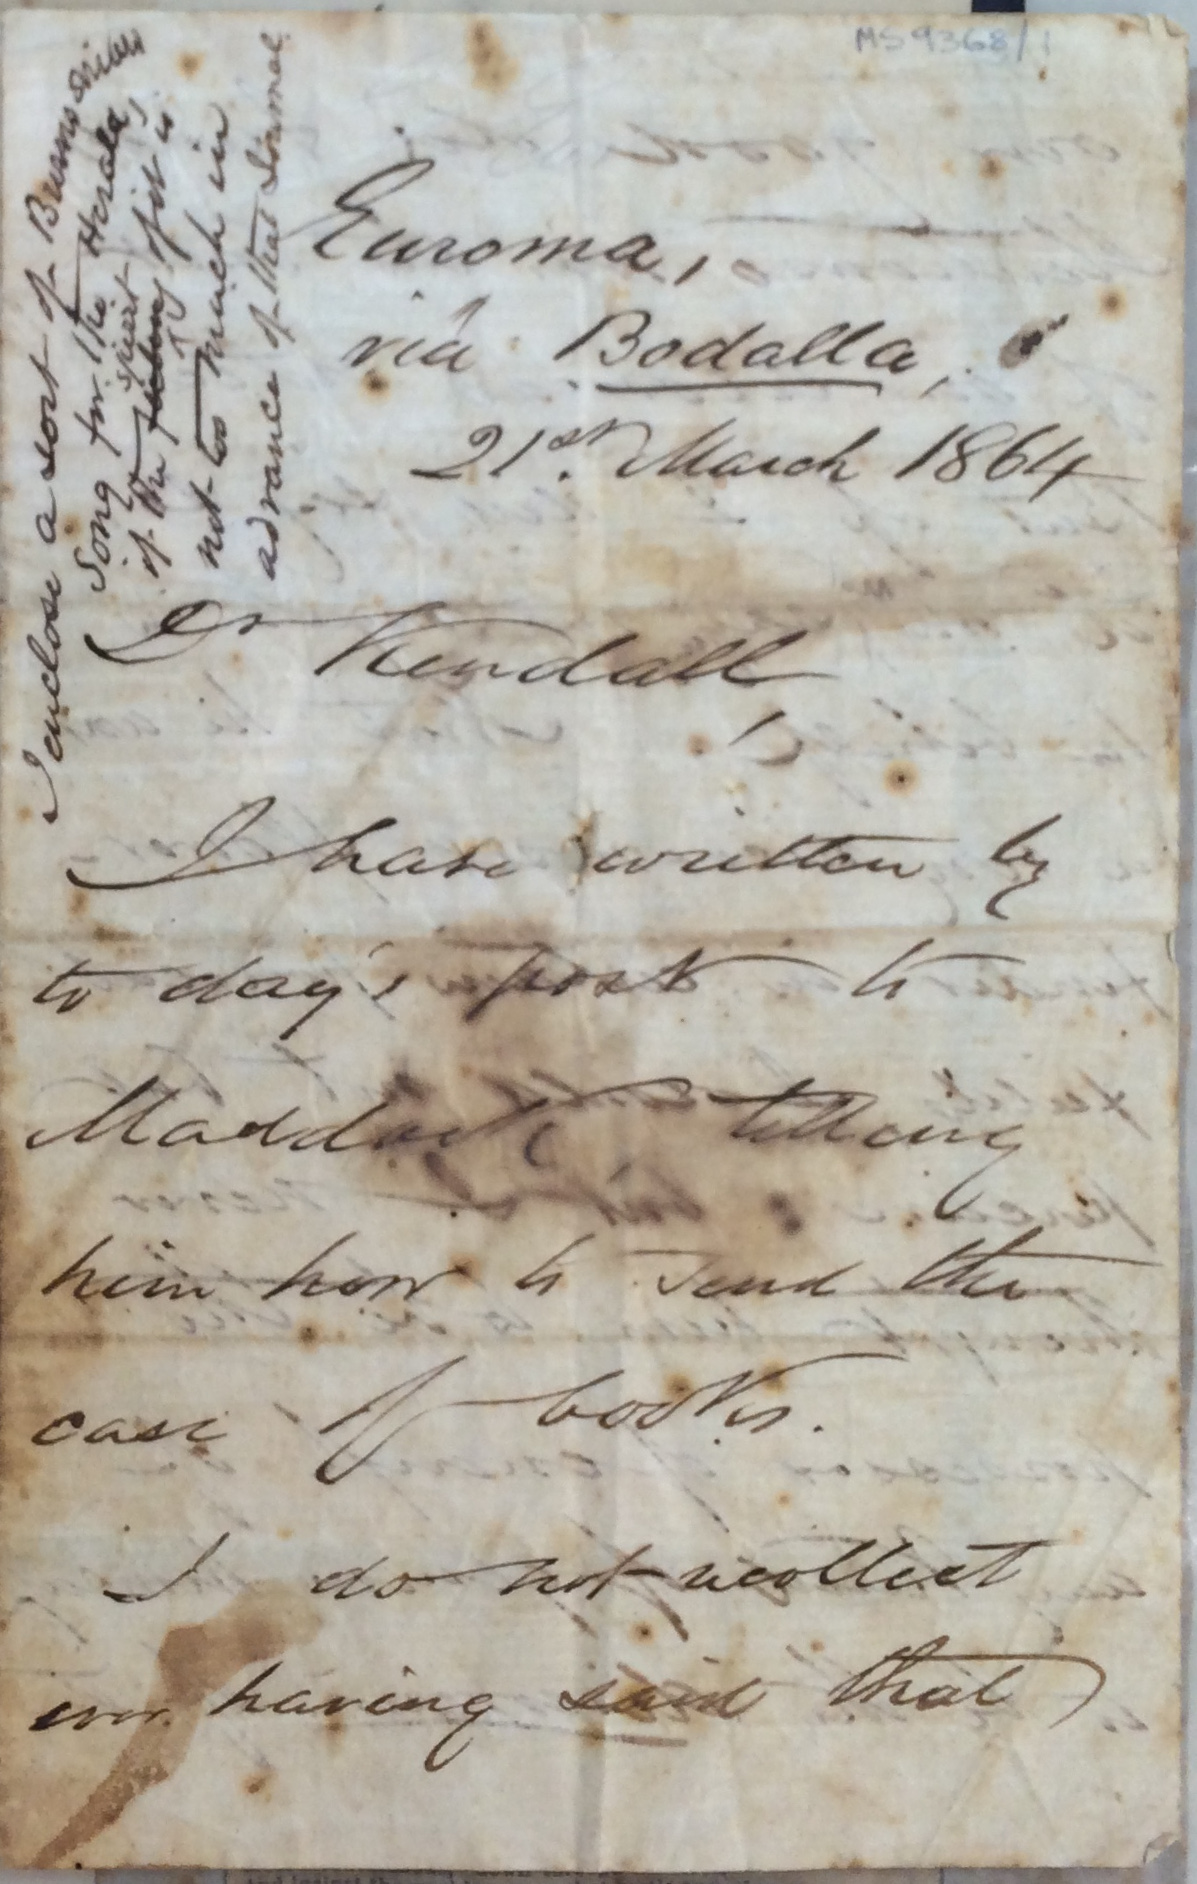 MS 9368/1
I enclose a sort of Burns
Song for the Herald,
spirit
if the of it is
not too much in
advance of that Journal
Euroma,
via Bodalla,
21st. March 1864
Dr Kendall,
I have written by
to day's post to
Maddock telling
him how to send the
case of books.
I do not recollect
ever having said that